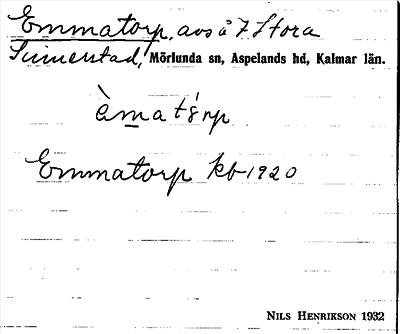 Emmatorp, avs å 7 Stora
Sinnerstad, Mörlunda sn, Aspelands hd, Kalmar län.
èmatórp
Emmatorp kb 1920
NILS HENRIKSON 1932